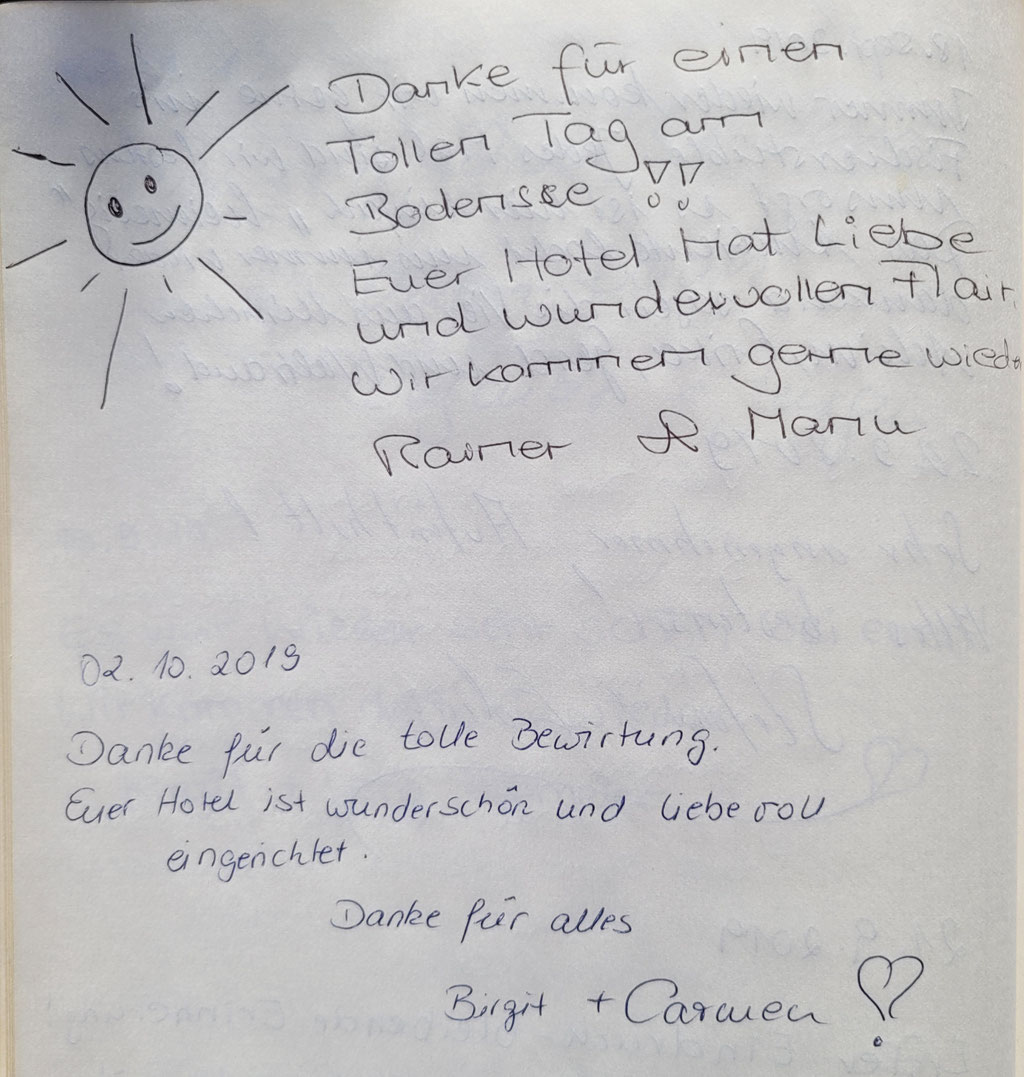 Danke für einen
Tollen Tag am
Bodensee !!
Euer Hotel Hat Liebe
und wundervollen Flair.
Wir kommen gerne wieder
Rainer &
02.10.2019
Danke für die tolle Bewirtung.
Euer Hotel ist wunderschön und liebevoll
eingerichtet.
Danke für alles
Birgit + Carmen